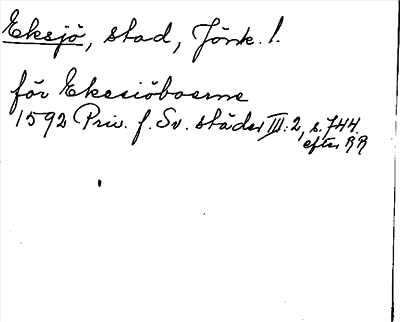 Eksjö, stad, Jönk. l.
för Ekesiöboerne
1592 Priv. f. Sv. städer III:2, s. 744.
efter RR